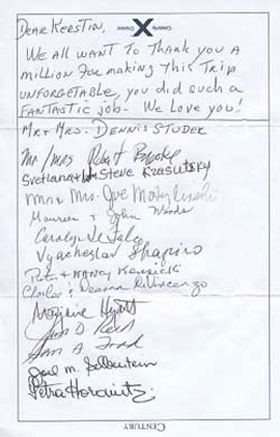 Celebrity Cruises
X
Dear Kerstin,
We all want to thank you a
million for making this trip
unforgetable, you did such a
fantastic job - We love you!
Mr + Mrs. Dennis Studer
Mr/Mrs Robert
Svetlana + Steve Krasutsky
Mr + Mrs. Joe
Maureen + John Woods
Carolyn
Vyacheslav Shapiro
Pete + Nancy
Charles + Deanna DiVincenzo
Marjorie
Ann A Ford
Joel M.
Petra Horowitz
Century